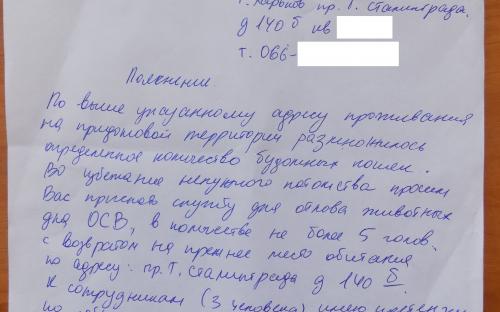 г. Харьков пр. Г. Сталинграда.
д 140 б кв
т. 066-
Пояснение.
По выше указанному адресу проживания
на придомовой территории размножилось
определенное количество бездомных кошек.
Во избежание ненужного потомства просим
Вас прислать службу для отлова животных
для ОСВ, в количестве не более 5 голов.
с возвратом на прежнее место обитания
по адресу: пр. Г. Сталинграда д 140 б
К сотрудникам (3 человека) имею претензии
по